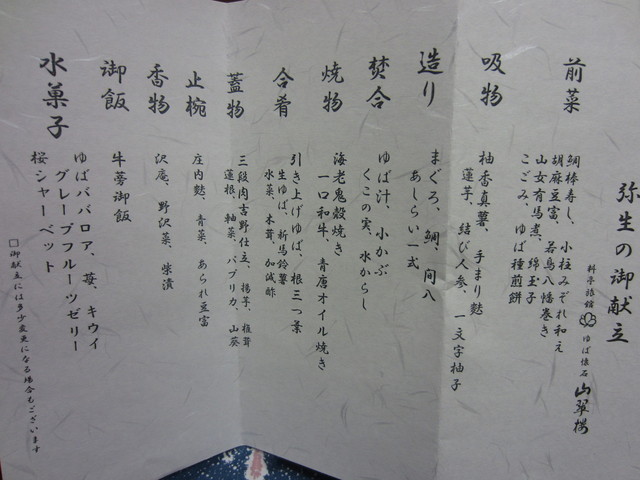 弥生の御献立
料亭旅館 ゆば懐石 山翠楼
前菜
鯛棒寿し、小柱みぞれ和え
胡麻豆富、若鳥八幡巻き
山女有馬煮、綿玉子
こごみ、ゆば種煎餅
吸物
柚香真薯、手まり麩
蓮芋、結び人参、一文字柚子
造り
まぐろ、鯛、間八
あしらい一式
焚合
ゆば汁、小かぶ
くこの実、水からし
焼物
海老鬼殻焼き
一口和牛、青唐オイル焼き
合肴
引き上げゆば、根三つ葉
生ゆば、新馬鈴薯
水菜、木茸、加減酢
蓋物
三段肉吉野仕立、揚芋、椎茸
蓮根、軸菜、パプリカ、山葵
止椀
庄内麩、青菜、あられ豆富
香物
沢庵、野沢菜、柴漬
御飯
牛蒡御飯
水菓子
ゆばババロア、苺、キウイ
グレープフルーツゼリー
桜シャーベット
□御献立には多少変更になる場合もございます